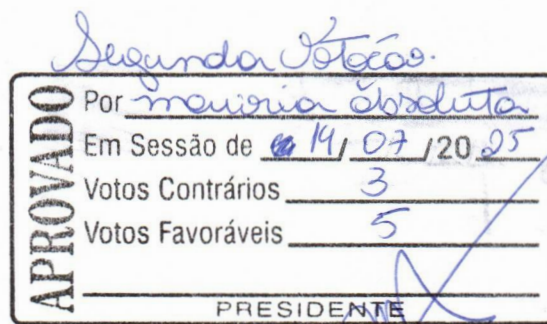 Segunda Votação.
APROVADO
Por maioria absoluta
Em Sessão de 14/07/2025
Votos Contrários 3
Votos Favoráveis 5
PRESIDENTE